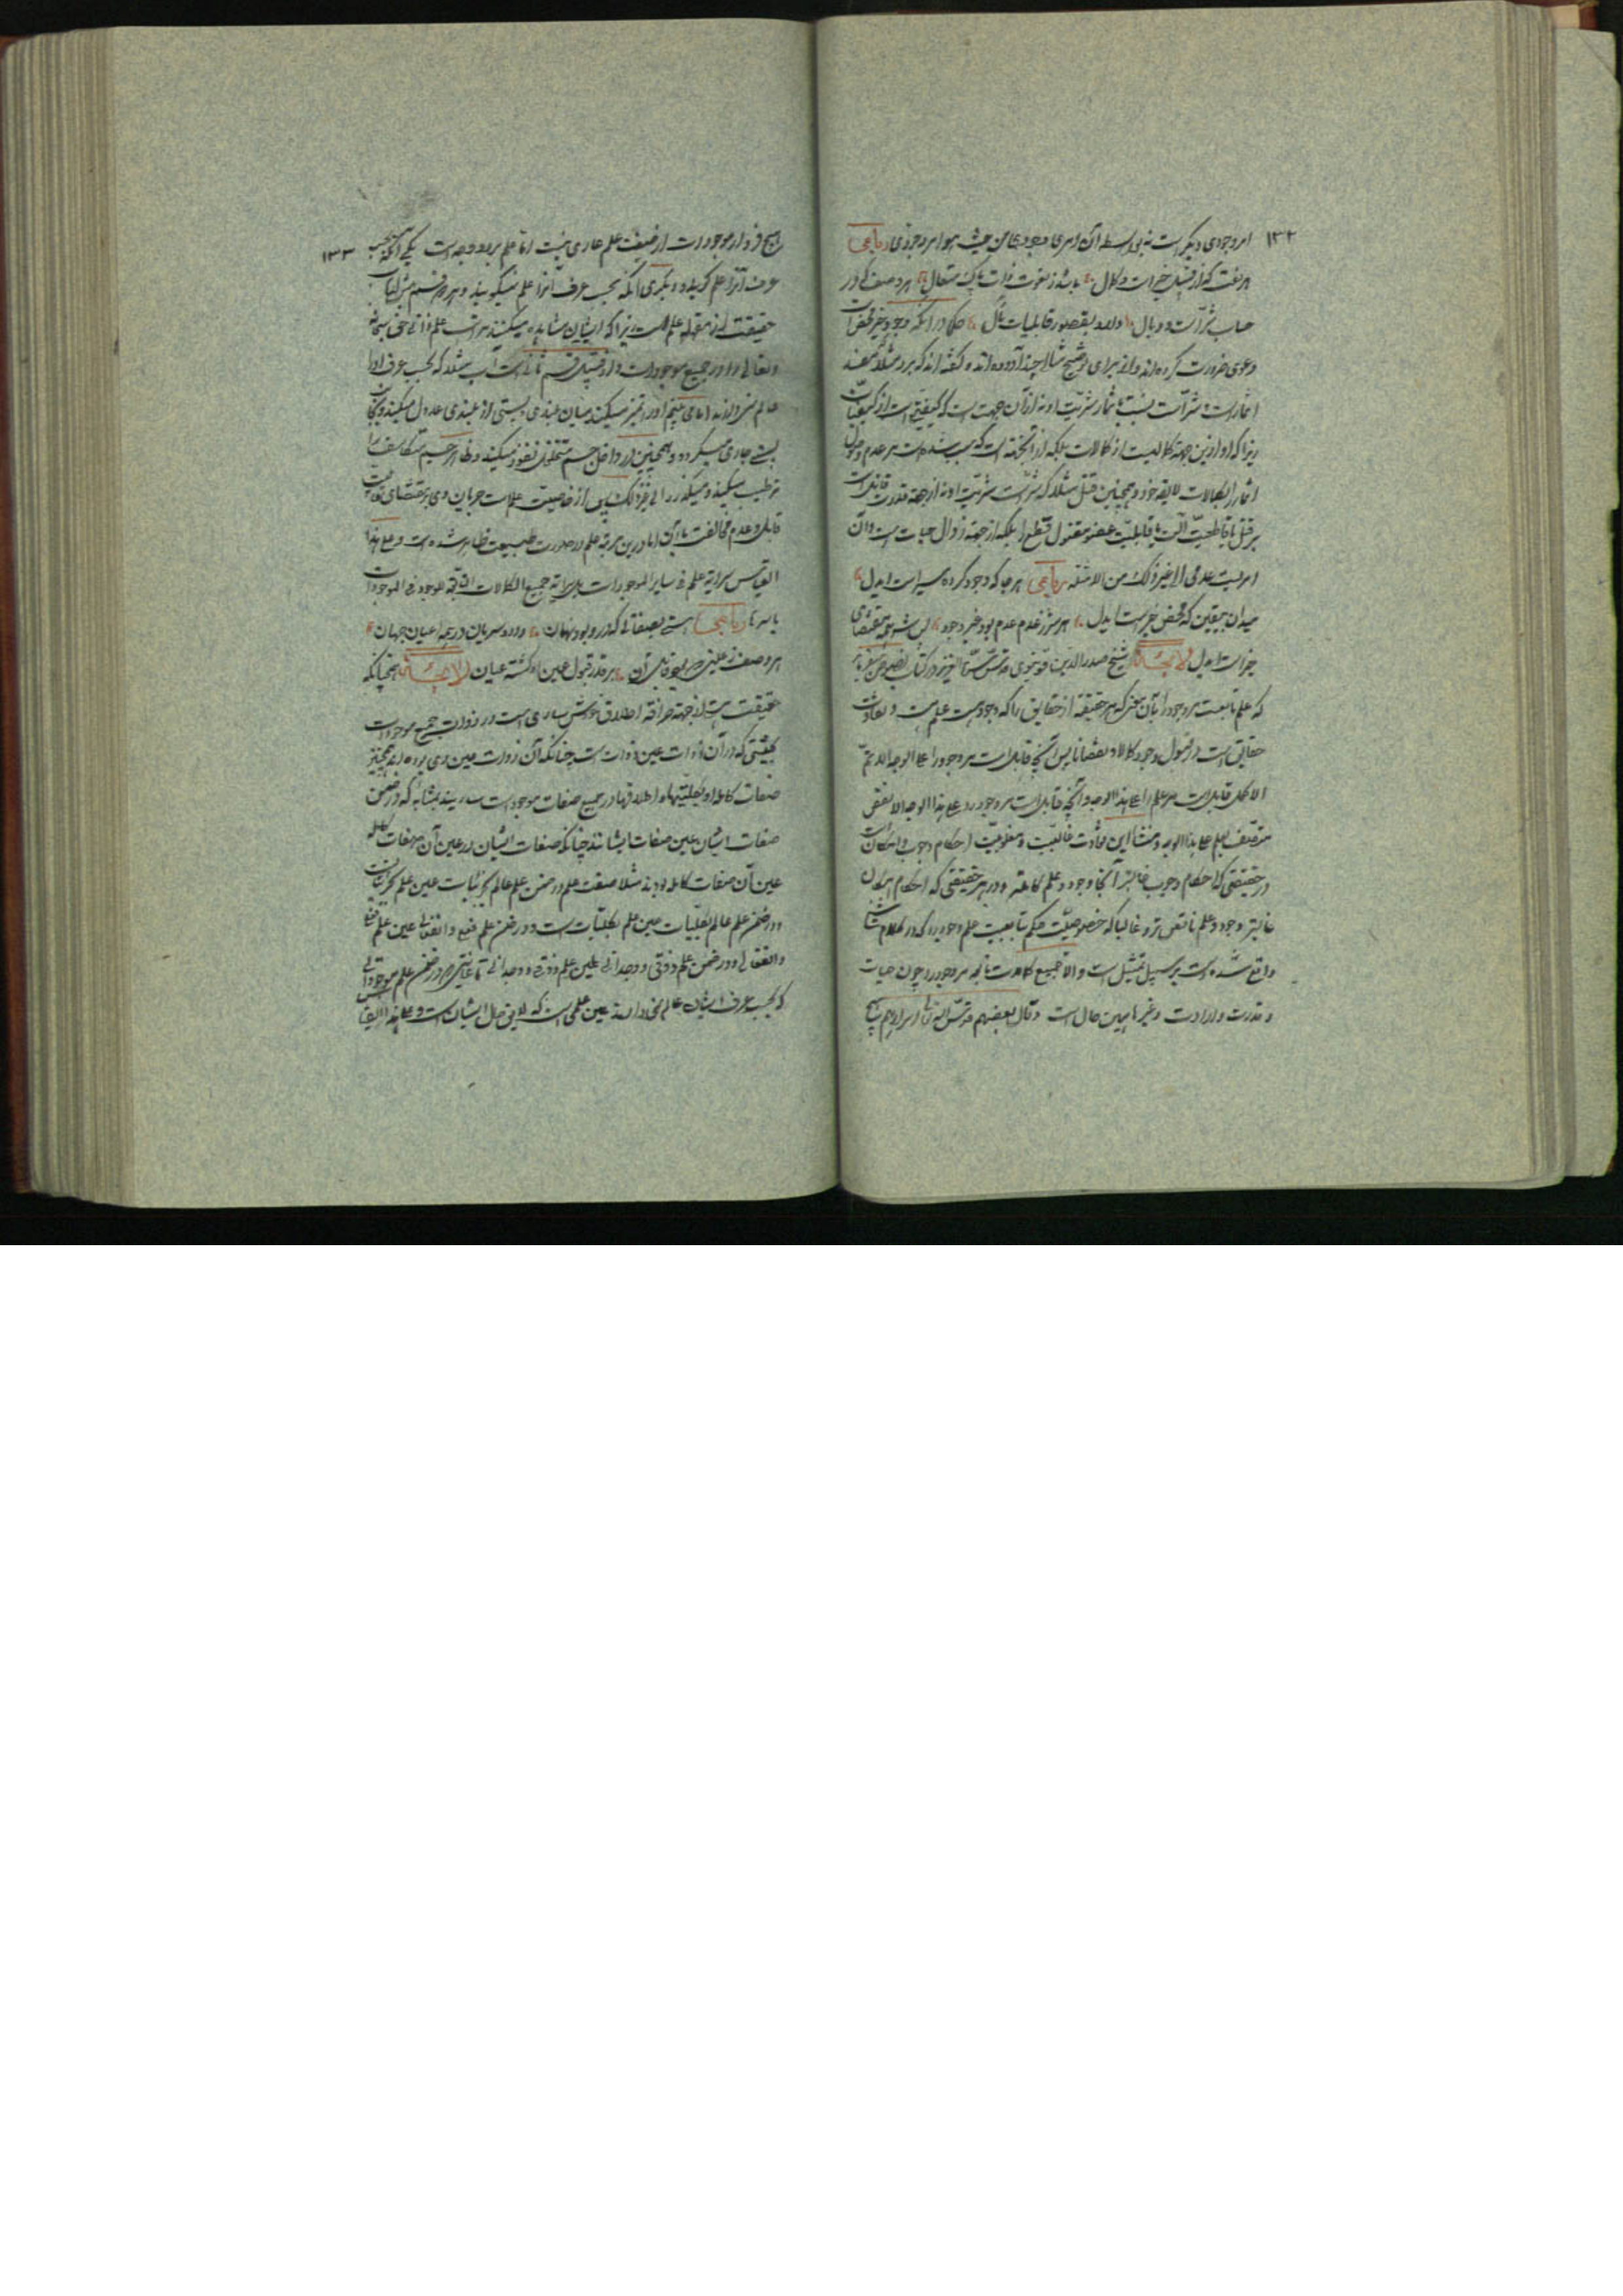 ۱۳۲
امر وجودی دیگر است نه بواسطه آن امر وجودی من حیث هو امر وجودی رباعی
هر نعت که از قبیل خیرات و کمال باشد ز نعوت ذات پاک متعال هر وصف که در
حساب شر است و وبال دارد بقصور قابلیات مآل حکما در آنکه وجود خیر محض است
دعوی ضرورت کرده‌اند و از برای توضیح مثالی چند آورده‌اند و گفته‌اند که برد مثلا مفسد
اثمار است و شر است نسبت با ثمار شریت او نه از آن جهت است که کیفیتی است از کیفیات
زیرا که او ازین جهة کمالیست از کمالات بلکه از آن جهة است که سبب شده است مر عدم وصول
اثمار را بکمالات لایقه خود و همچنین قتل مثلا که شر است شریت او نه از جهة قدرت قاتل است
بر قتل یا قاطعیت آلت یا قابلیت عضو مقتول قطع را بلکه از جهة زوال حیات است و آن
امریست عدمی الی غیر ذلک من الامثله رباعی هر جا که وجود کرده سیر است ایدل
میدان بیقین که محض خیر است ایدل هر شر ز عدم بود عدم غیر وجود پس شر همه مقتضای
غیر است ایدل لایحه شیخ صدرالدین قونیوی قدس سره العزیز در کتاب نصوص میفرماید
که علم تابعست مر وجود را بآن معنی که هر حقیقة از حقایق را که وجود هست علم هست و تفاوت
حقایق است در قبول وجود کمالا و نقصانا پس آنچه قابلست مر وجود را علی الوجه الاتم
الاکمل قابلست مر علم را علی هذا الوجه و آنچه قابلست مر وجود را علی هذا الوجه الانقص
متصف بعلم علی هذا الوجه و منشأ این تفاوت غالبیت و مغلوبیت احکام وجوب و امکان است
در حقیقتی که احکام وجوب غالبتر آنجا وجود و علم کاملتر و در هر حقیقتی که احکام امکان
غالبتر وجود و علم ناقص‌تر و غالبا که خصوصیت حکم بتابعیت علم وجود را که در کلام شیخ
واقع شده است بر سبیل تمثیل است و الا جمیع کمالات تابعه مر وجود را چون حیات
و قدرت و ارادت و غیرها همین حال است و قال بعضهم قدس الله تعالی اسرارهم هیچ
۱۳۳
هیچ فرد از موجودات از صفت علم عاری نیست اما علم بر دو وجه است یکی آنکه بحسب
عرف آنرا علم گویند و دیگری آنکه بحسب عرف آنرا علم نمیگویند و هر دو قسم پیش ارباب
حقیقت از مقوله علم است زیرا که ایشان مشاهده میکنند سرایت علم ذاتی حق سبحانه
و تعالی را در جمیع موجودات و از قبیل قسم ثانی است آب مثلا که بحسب عرف او را
عالم نمیدانند اما می‌بینیم او را که تمیز میکند میان بلندی و پستی از بلندی عدول میکند و بجانب
پستی جاری میگردد و همچنین در داخل جسم متخلخل نفوذ میکند و ظاهر جسم متکاثف را
ترطیب میکند و میگذرد الی غیر ذلک پس از خاصیت علمست جریان وی بر مقتضای قابلیت
قابل و عدم مخالفت با آن اما درین مرتبه علم در صورت طبیعت ظاهر شده است و علی هذا
القیاس سرایة علم فی سایر الموجودات بل سرایة جمیع الکمالات التابعة للوجود فی الموجودات
باسرها رباعی هستی بصفاتی که در و بود نهان دارد سریان در همه اعیان جهان
هر وصف ز عینی که بود قابل آن بر قدر قبول عین او گشته عیان لایحه همچنانکه
حقیقت هستی از جهة صرافة اطلاق خودش ساری است در ذوات جمیع موجودات
بحیثیتی که در آن ذوات عین ذوات است چنانکه آن ذوات عین وی بوده‌اند همچنین
صفات کامله او بکلیتها و اطلاقها در جمیع صفات موجودات ساریند بمثابه که در ضمن
صفات ایشان عین صفات ایشانند چنانکه صفات ایشان در عین آن صفات کامله
عین آن صفات کامله بودند مثلا صفت علم در ضمن علم عالم بجزئیات عین علم بجزئیات
و در ضمن علم عالم بکلیات عین علم بکلیات است و در ضمن علم فعلی و انفعالی عین علم فعلی
و انفعالی و در ضمن علم ذوقی و وجدانی عین علم ذوقی و وجدانی تا غایتی که در ضمن علم موجوداتی
که بحسب عرف ایشان عالم نمیدانند عین علمی است که لایق حال ایشان است و علی هذا القیاس